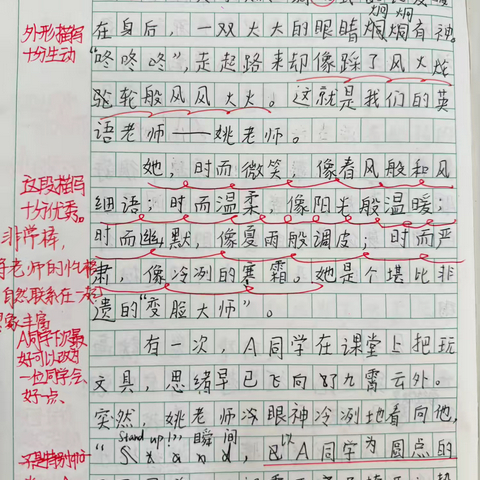 炯炯
在身后，一双大大的眼睛炯炯有神。
“咚咚咚”，走起路来却像踩了风火轮
轮般风风火火。这就是我们的英
语老师——姚老师。
她，时而微笑，像春风般和风
细语；时而温柔，像阳光般温暖；
时而幽默，像夏雨般调皮；时而严
肃，像冷冽的寒霜。她是个堪比非
遗的“变脸大师”。
有一次，A同学在课堂上把玩
文具，思绪早已飞向了九霄云外。
突然，姚老师冷眼神冷冽地看向他，
Stand up!), 瞬间
“Stand, 以A同学为圆点的
外形描写
十分生动
这段描写
十分优秀。
非学棒，
将老师的性格
自然联系在一起
丰富
A同学下次最
好可以改为
一位同学会
好一点、